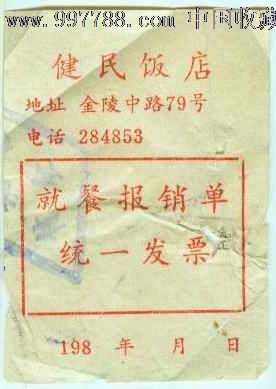 www.997788.com 中国收藏
健民饭店
地址 金陵中路79号
电话 284853
就餐报销单
统一发票
198 年 月 日